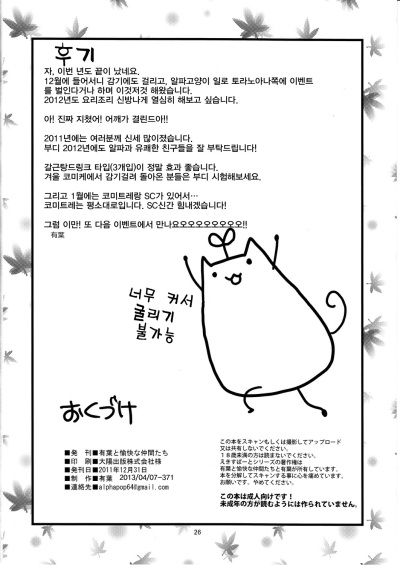 후기
자, 이번 년도 끝이 났네요.
12월에 들어서니 감기에도 걸리고, 알파고양이 일로 토라노아나쪽에 이벤트
를 벌인다거나 하며 이것저것 해왔습니다.
2012년도 요리조리 신방나게 열심히 해보고 싶습니다.
아! 진짜 지쳤어! 어깨가 결린드아!!
2011년에는 여러분께 신세 많이졌습니다.
부디 2012년에도 알파과 유쾌한 친구들을 잘 부탁드립니다!
갈근탕드링크 타입(3개입)이 정말 효과 좋습니다.
겨울 코미케에서 감기걸려 돌아온 분들은 부디 시험해보세요.
그리고 1월에는 코미트레랑 SC가 있어서…
코미트레는 평소대로입니다. SC신간 힘내겠습니다!
그럼 이만! 또 다음 이벤트에서 만나요오오오오오오오오!!
有葉
너무 커서
굴리기
불가능
おくづけ
■発　刊 ■有葉と愉快な仲間たち
■印　刷 ■大陽出版株式会社様
■発刊日 ■2011年12月31日
■制　作 ■有葉 2013/04/07-371
■連絡先 ■alphapop64@gmail.com
この本をスキャンもしくは撮影してアップロード
又は共有しないでください。
１８歳未満の方は読まないでください。
えきすぱーとシリーズの著作権は
有葉と愉快な仲間たちと有葉が所有しています。
本を分解してスキャンする事に心を痛めています。
お願いです。やめてください。
この本は成人向けです！
未成年の方が読むようには作られていません。
26